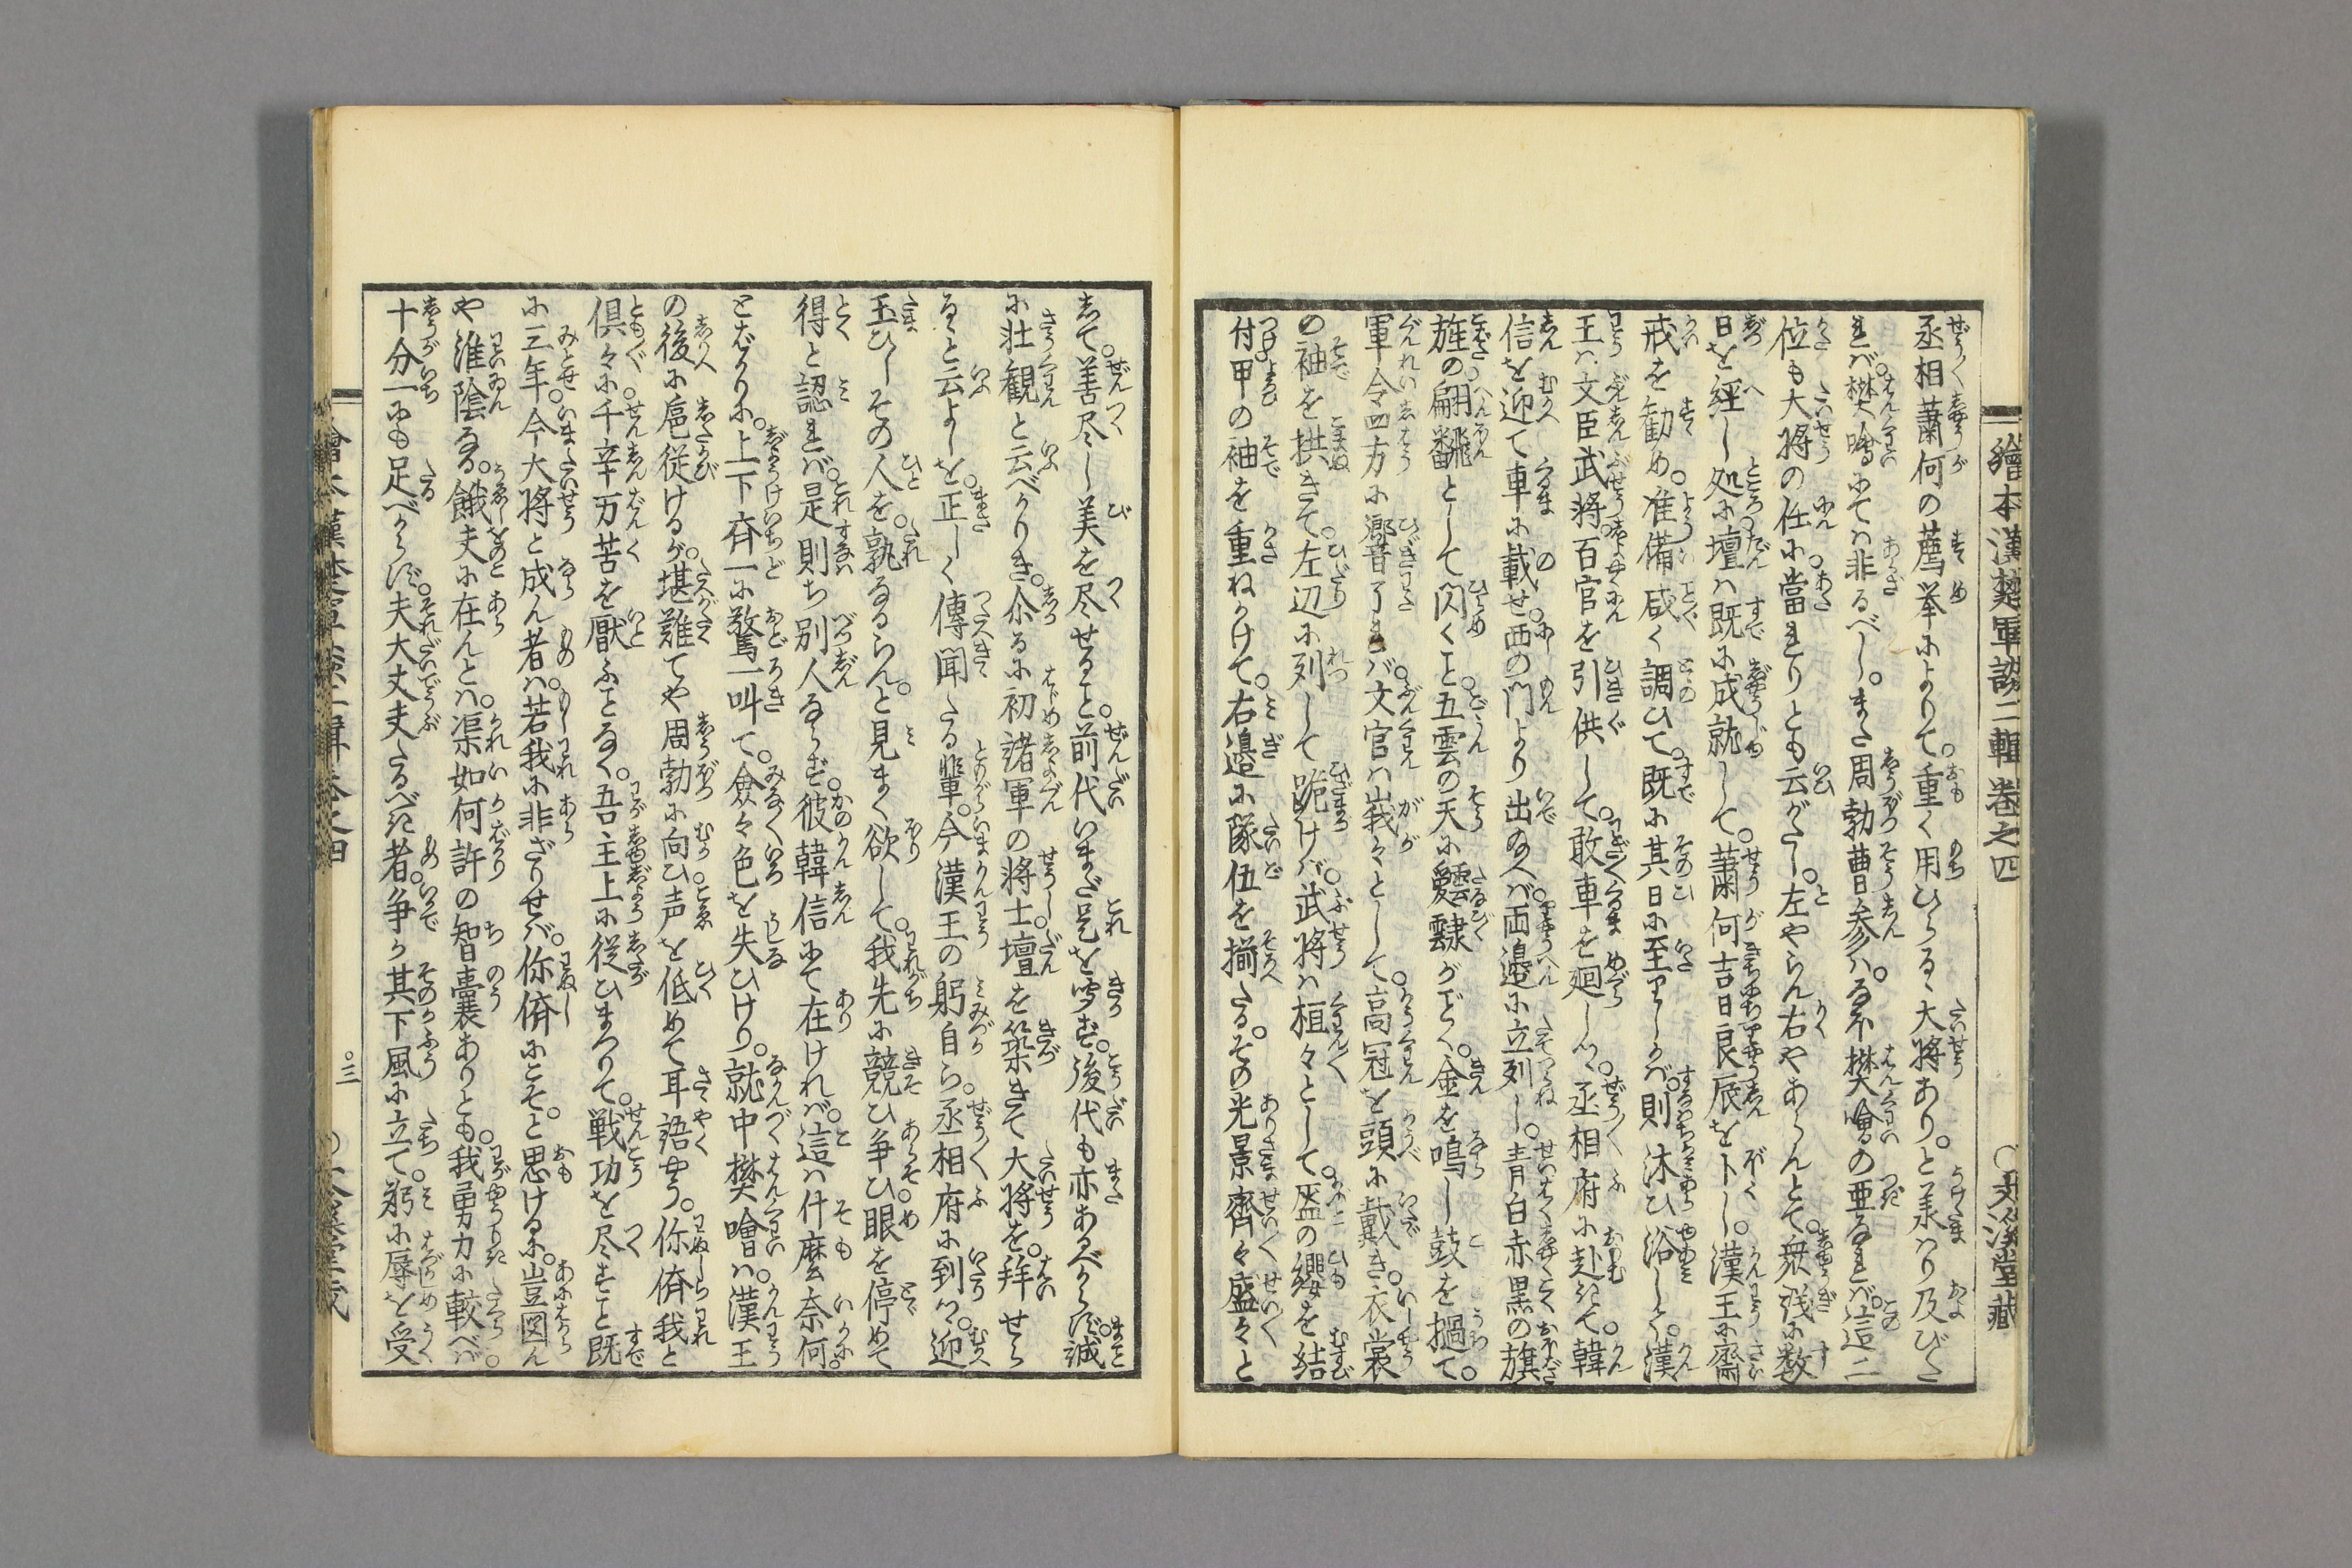 繪本漢楚軍談二輯巻之四
文溪堂藏
丞相蕭何の薦挙によりて。重く用ひらるゝ大将あり。と承はり及びた
れば。樊噲にては非るべし。また周勃曹参は。なほ樊噲の亜なれば。這二
位も大将の任に當れりとも云がたし。左やらん右やあらんとて。衆議に数
日を経し処に。壇は既に成就して。蕭何吉日良辰をトし。漢王に齋
戒を勧め。准備咸く調ひて。既に其日に至りしかば。則沐ひ浴して。漢
王は文臣武将。百官を引供して。敢車を廻しつ。丞相府に赴きて。韓
信を迎て車に載せ。西の門より出給へば。両邉に立列し。青白赤黒の旗
旌の翩飜として閃くこと。五雲の天に靉靆がごとく。金を鳴らし鼓を撾て。
軍令四方に響了れば。文官は峩々として。高冠を頭に戴き。衣裳
の袖を拱きて。左辺に列して跪けば。武将は桓々として。盔の纓を結
付。甲の袖を重ねかけて。右邉に隊伍を揃たる。その光景齊々盛々と
して。善尽し美を尽せること。前代いまだ是を聞ず。後代も亦あるべからず。誠
に壮観と云べかりき。尒るに初諸軍の将士。壇を築きて大将を。拜せら
るゝと云よしを。正しく傳聞たる輩。今漢王の躬自ら。丞相府に到りつ。迎
玉ひしその人を。孰なるらん。と見まく欲して。我先に競ひ争ひ。眼を停めて
得と認れば。是則ち別人ならず。彼韓信にて在ければ。這は什麼奈何。
とばかりに。上下斉一に驚叫て。僉々色を失ひけり。就中樊噲は。漢王
の後に扈従けるが。堪難てや周勃に向ひ。声を低めて耳語やう。你儕我と
倶々に。千辛万苦を厭ふことなく。吾主上に従ひまつりて。戦功を尽すこと既
に三年。今大将と成ん者は。若我に非ざりせば。你儕にこそ。と思けるに。豈図ん
や淮陰なる。餓夫に在んとは。渠如何許の智嚢ありとも。我勇力に較べば。
十分一にも足べからず。夫大丈夫たるべき者。争か其下風に立て。躬に辱を受
〇三